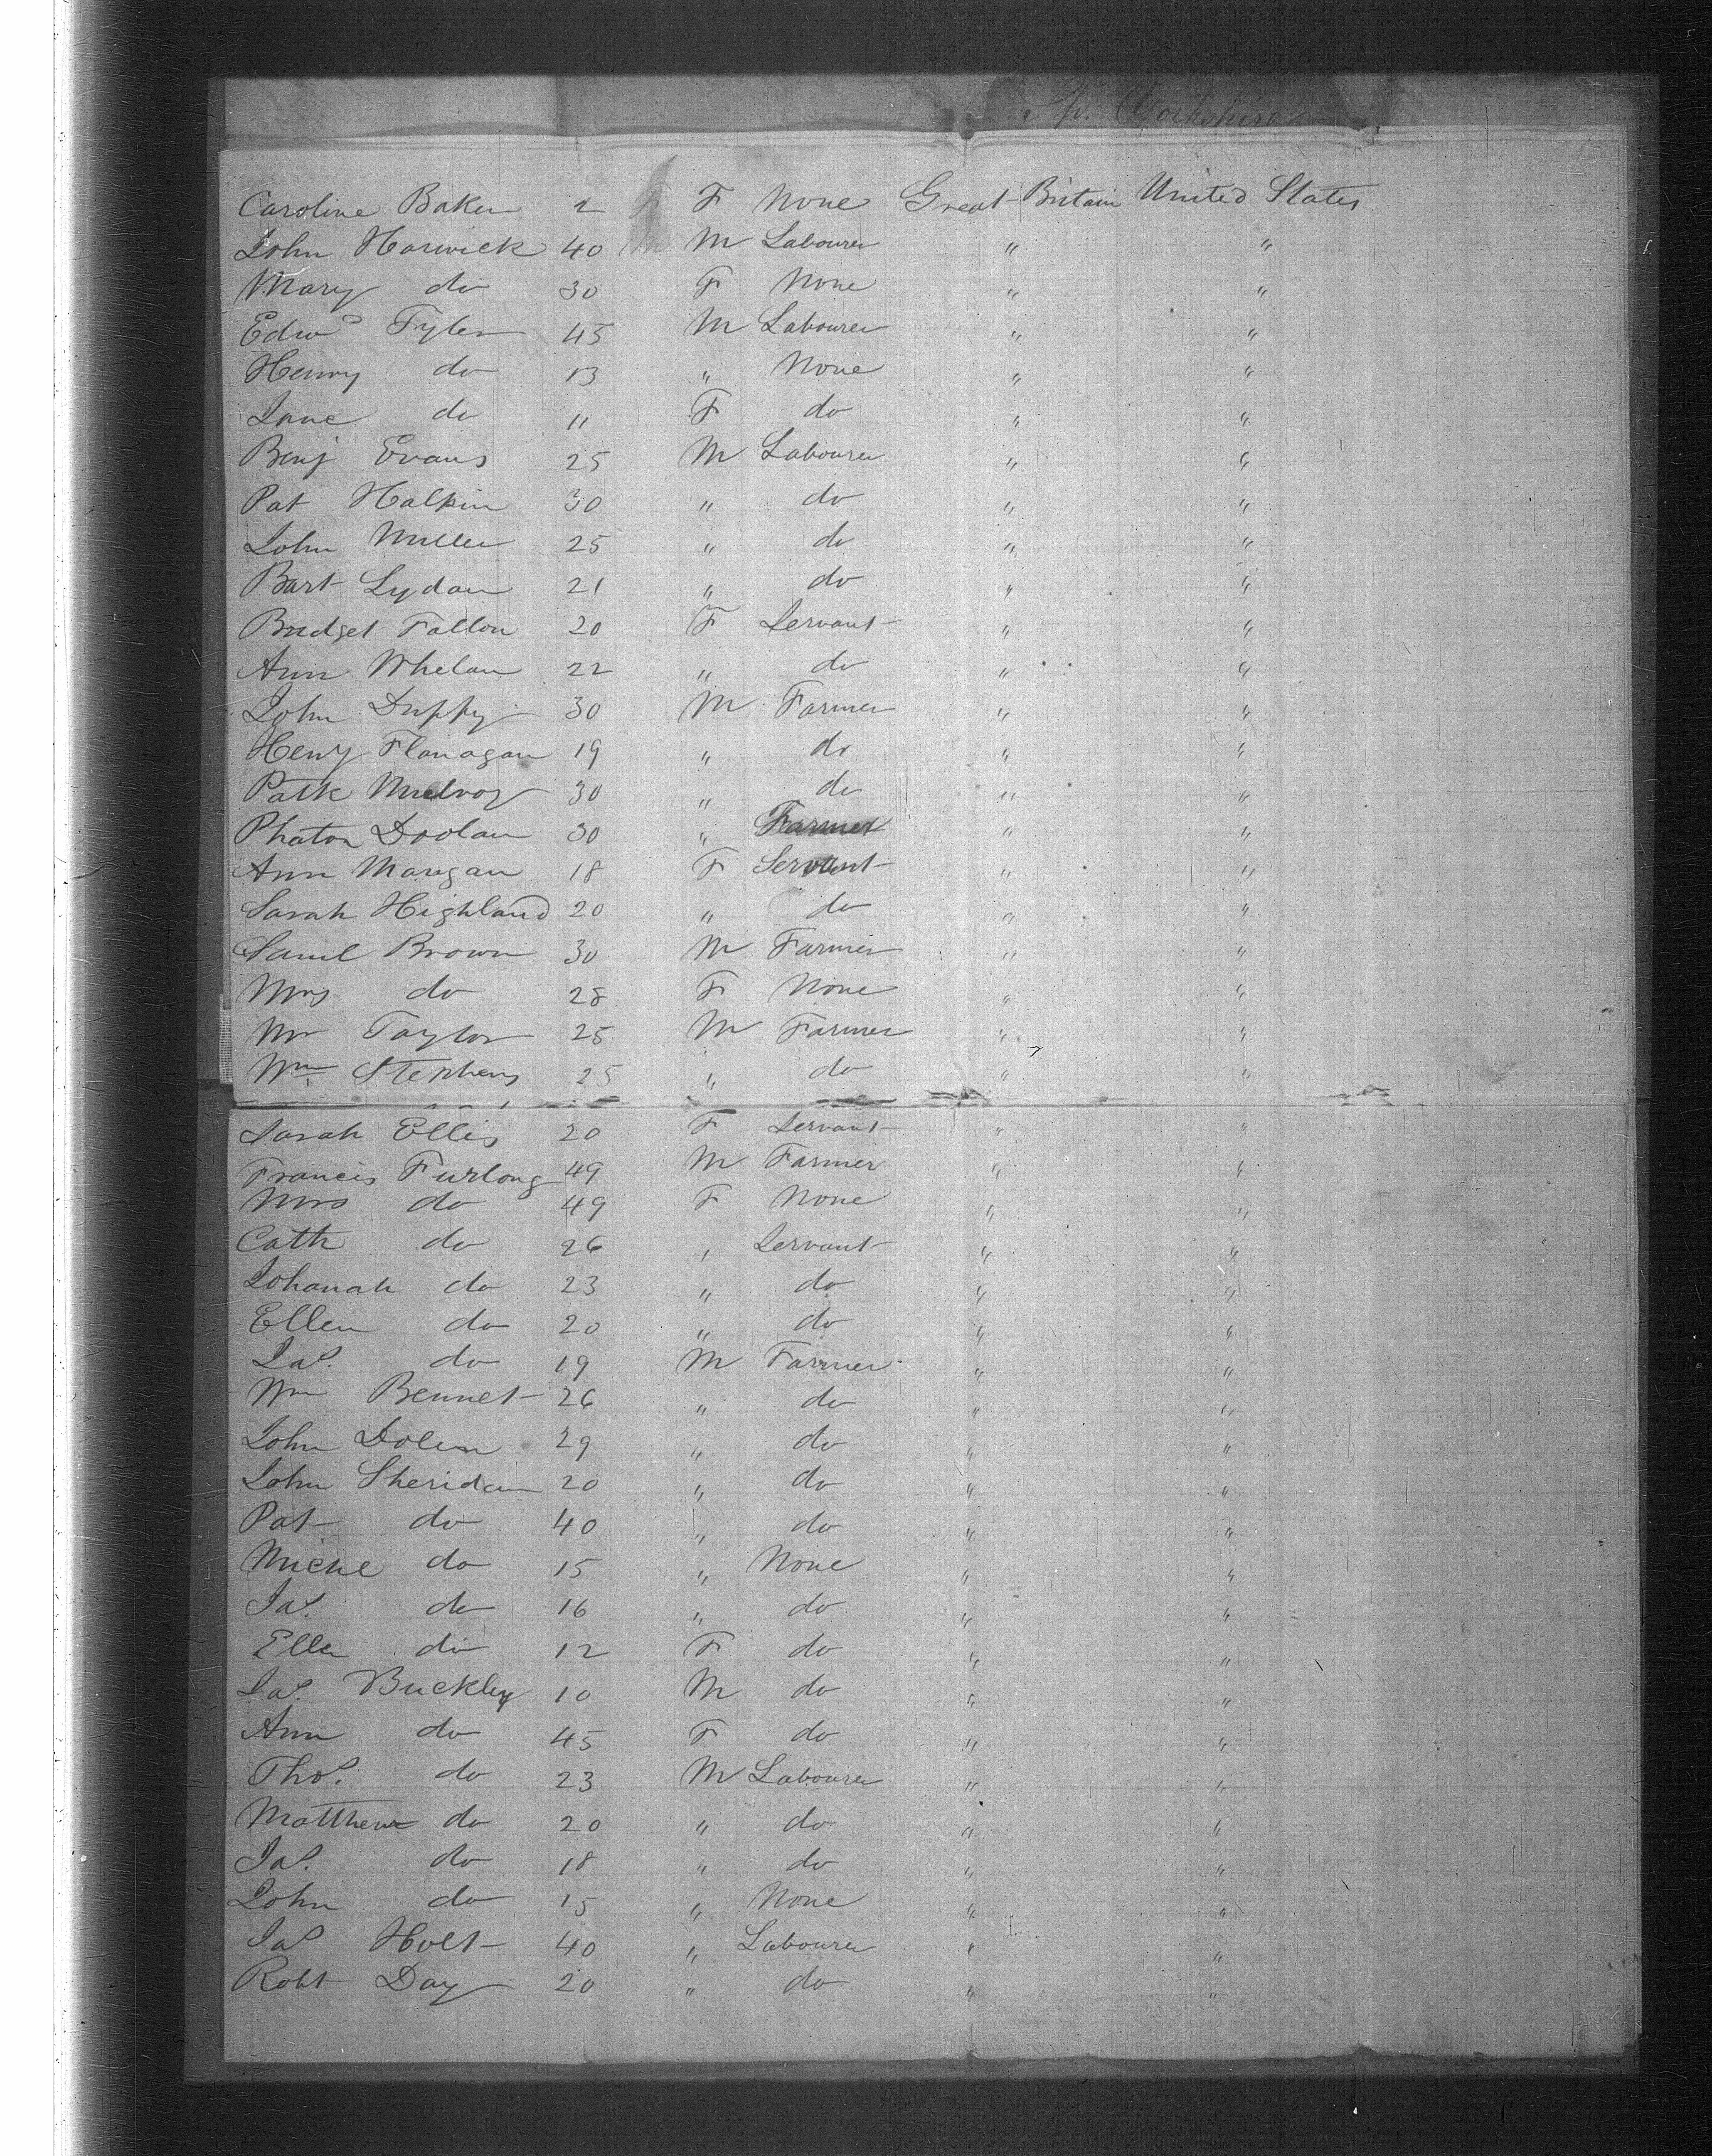 Sp. Yorkshire
Caroline Baker 2 F F None Great Britain United States
John Harwick 40 M M Labourer " "
Mary do 30 F None " "
Edwd Tyler 45 M Labourer " "
Henry do 13 " None " "
Jane do 11 F do " "
Benj Evans 25 M Labourer " "
Pat Halpin 30 " do " "
John Miller 25 " do " "
Bart Lydan 21 " do " "
Bridget Fallon 20 F Servant " "
Ann Whelan 22 " do " "
John Duffy 30 M Farmer " "
Heny Flanagan 19 " do " "
Patk 30 " do " "
Phaton Doolan 30 " Farmer " "
Ann Mangan 18 F Servant " "
Sarah Highland 20 " do " "
Saml Brown 30 M Farmer " "
Mrs do 28 F None " "
Mr Taylor 25 M Farmer " "
Wm Stephens 25 " do " "
Sarah Ellis 20 F Servant " "
Francis Furlong 49 M Farmer " "
Mrs do 49 F None " "
Cath do 26 " Servant " "
Johanah do 23 " do " "
Ellen do 20 " do " "
Jas. do 19 M Farmer " "
Wm Bennet 26 " do " "
John Dolen 29 " do " "
John Sheridan 20 " do " "
Pat do 40 " do " "
Michl do 15 " None " "
Jas. do 16 " do " "
Ellen do 12 F do " "
Jas. Buckley 10 M do " "
Ann do 45 F do " "
Thos. do 23 M Labourer " "
Matthew do 20 " do " "
Jas. do 18 " do " "
John do 15 " None " "
Jas Holt 40 " Labourer " "
Robt Day 20 " do " "